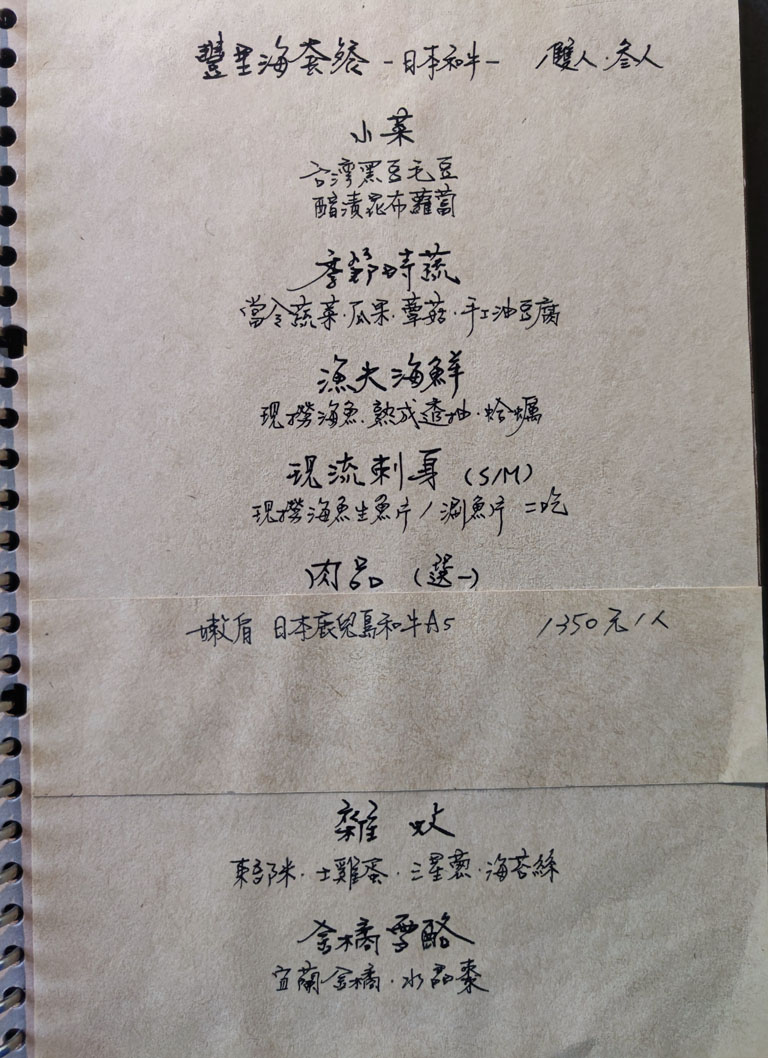 豐里海套餐 -日本和牛- /雙人·叁人
小菜
台灣黑豆毛豆
醋漬昆布蘿蔔
季節時蔬
當令蔬菜·瓜果·蕈菇·手工油豆腐
漁夫海鮮
現撈海魚·熟成透抽·蛤蠣
現流刺身 (S/M)
現撈海魚生魚片/涮魚片 二吃
肉品 (選一)
嫩肩 日本鹿兒島和牛A5 1350元/人
雜炊
東部米·土雞蛋·三星蔥·海苔絲
金橘雪酪
宜蘭金橘·水晶棗